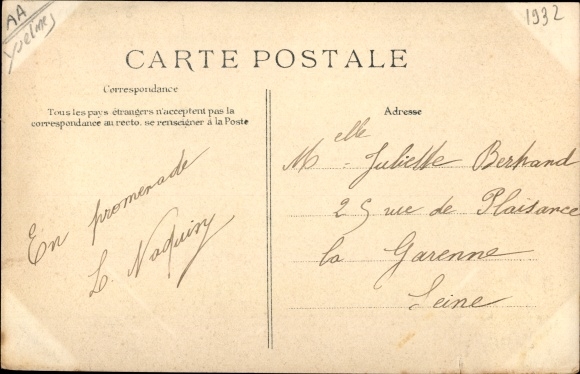 AA
Yvelines
1932
CARTE POSTALE
Correspondance
Tous les pays étrangers n'acceptent pas la
correspondance au recto. se renseigner à la Poste
En promenade
L. Naquiny
Adresse
Melle Juliette Bertrand
25 rue de Plaisance
la Garenne
Seine